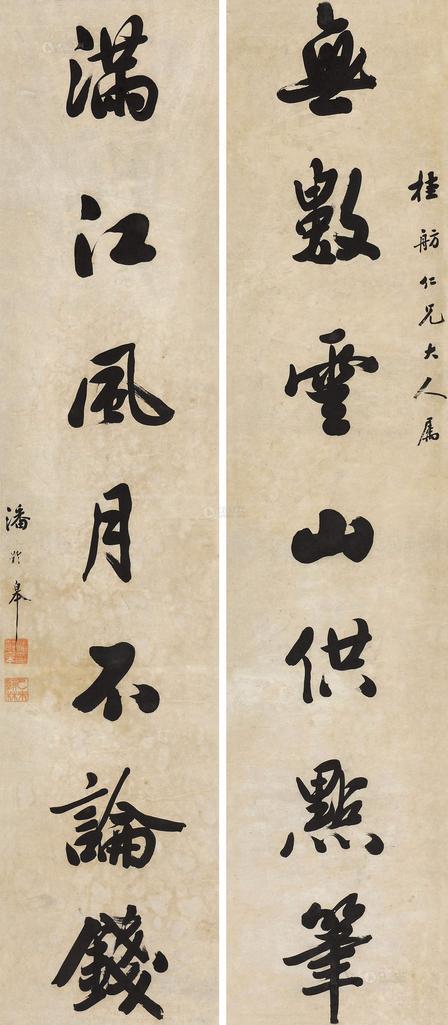 無數雲山供點筆
桂舫仁兄大人属
滿江風月不論錢
潘齡皋